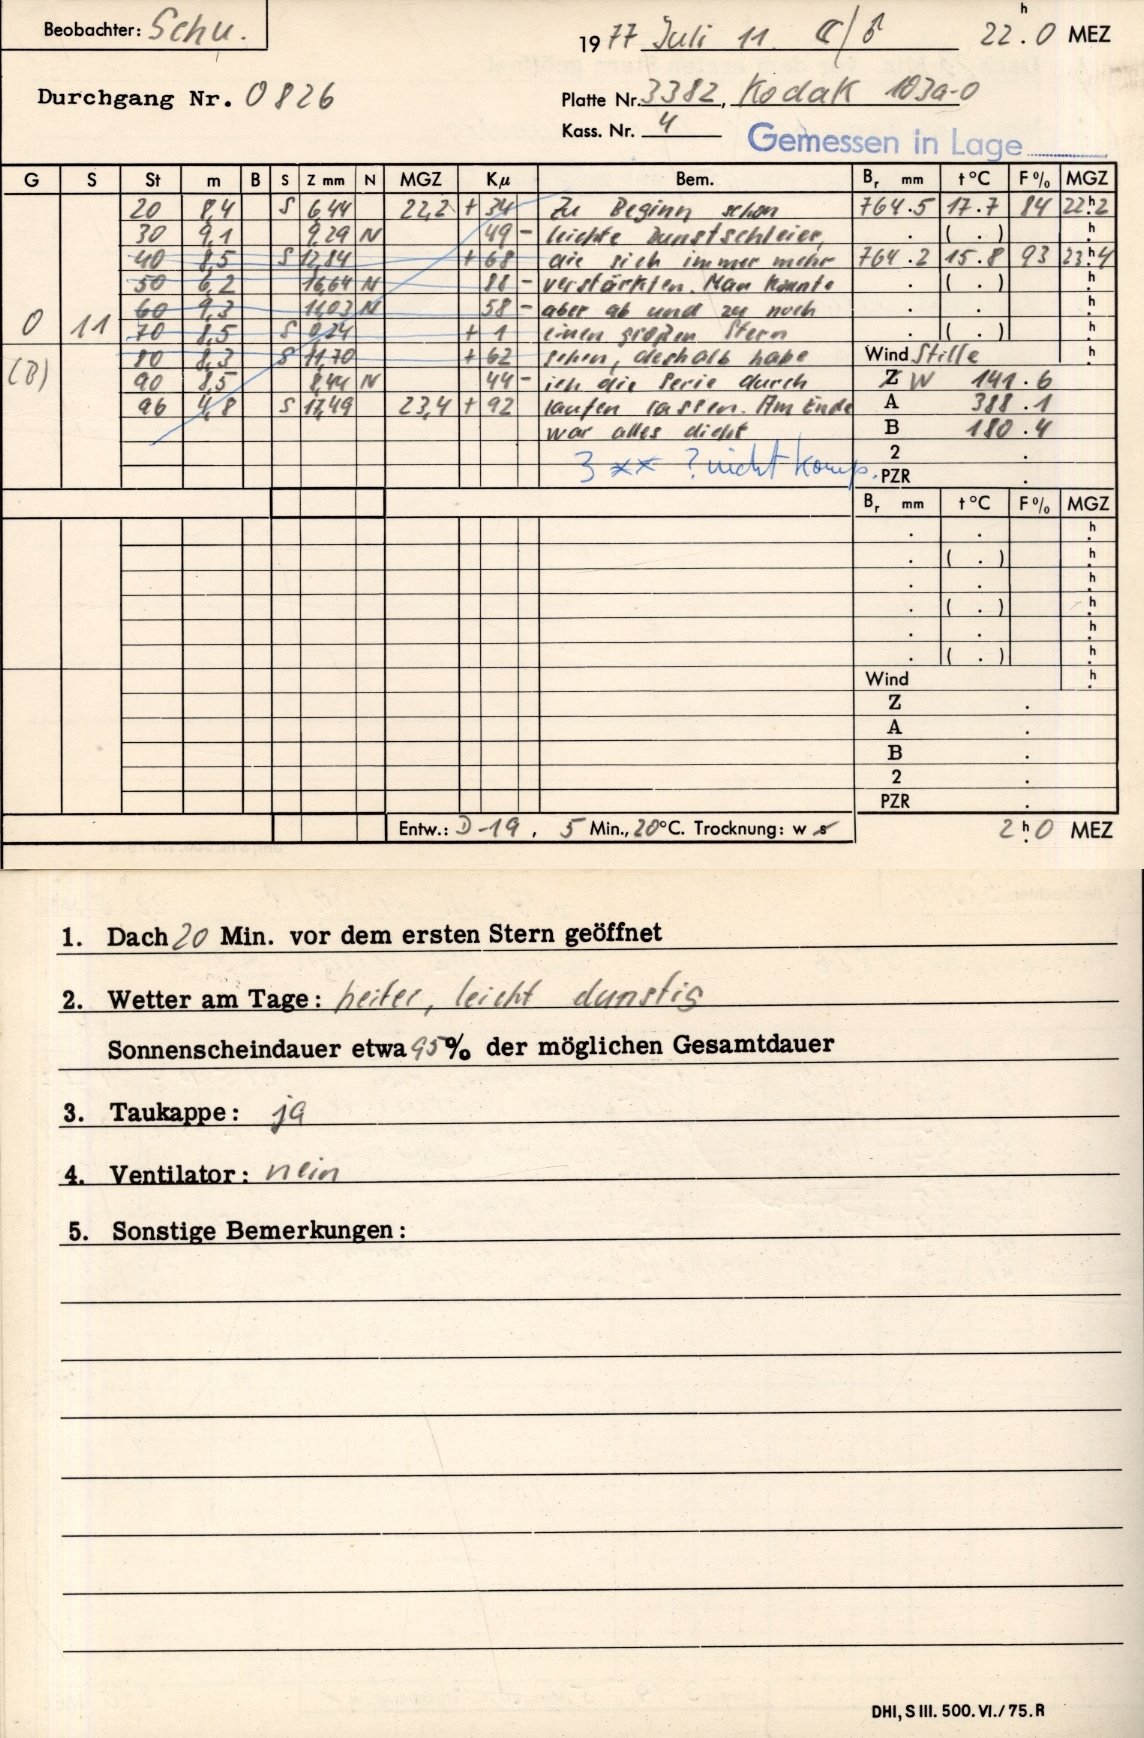 Beobachter: Schu.
1977 Juli 11. 22h.0 MEZ
Durchgang Nr. 0826
Platte Nr. 3382, Kodak 103a-O
Kass. Nr. 4
Gemessen in Lage
G S St m B S Z mm N MGZ Kμ Bem. Br mm t °C F % MGZ
20 8,4 S 6,44 22,2 + 34 Zu Beginn schon 764.5 17.7 84 22h.2
30 9,1 9,29 N 49 - leichte Dunstschleier, . ( . ) h.
40 8,5 S 12,84 + 68 die sich immer mehr 764.2 15.8 93 23h.4
50 6,2 16,64 N 88 - verstärkten. Man konnte . ( . ) h.
60 9,3 11,03 N 58 - aber ab und zu noch . . h.
0 11 70 8,5 S 0,24 + 1 einen großen Stern . ( . ) h.
(B) 80 8,3 S 11,70 + 62 sehen, deshalb habe Wind Stille h.
90 8,5 8,44 N 44 - ich die Serie durch Z W 141.6
96 4,8 S 17,49 23,4 + 92 laufen lassen. Am Ende A 388.1
war alles dicht B 180.4
3 ** ? nicht komp. 2 .
PZR .
Br mm t °C F % MGZ
. . h.
. ( . ) h.
. . h.
. ( . ) h.
. . h.
. ( . ) h.
Wind h.
Z .
A .
B .
2 .
PZR .
Entw.: D-19, 5 Min., 20°C. Trocknung: w s
2h.0 MEZ
1. Dach 20 Min. vor dem ersten Stern geöffnet
2. Wetter am Tage: heiter, leicht dunstig
Sonnenscheindauer etwa 95% der möglichen Gesamtdauer
3. Taukappe: ja
4. Ventilator: nein
5. Sonstige Bemerkungen:
DHI, S III. 500. VI./75. R